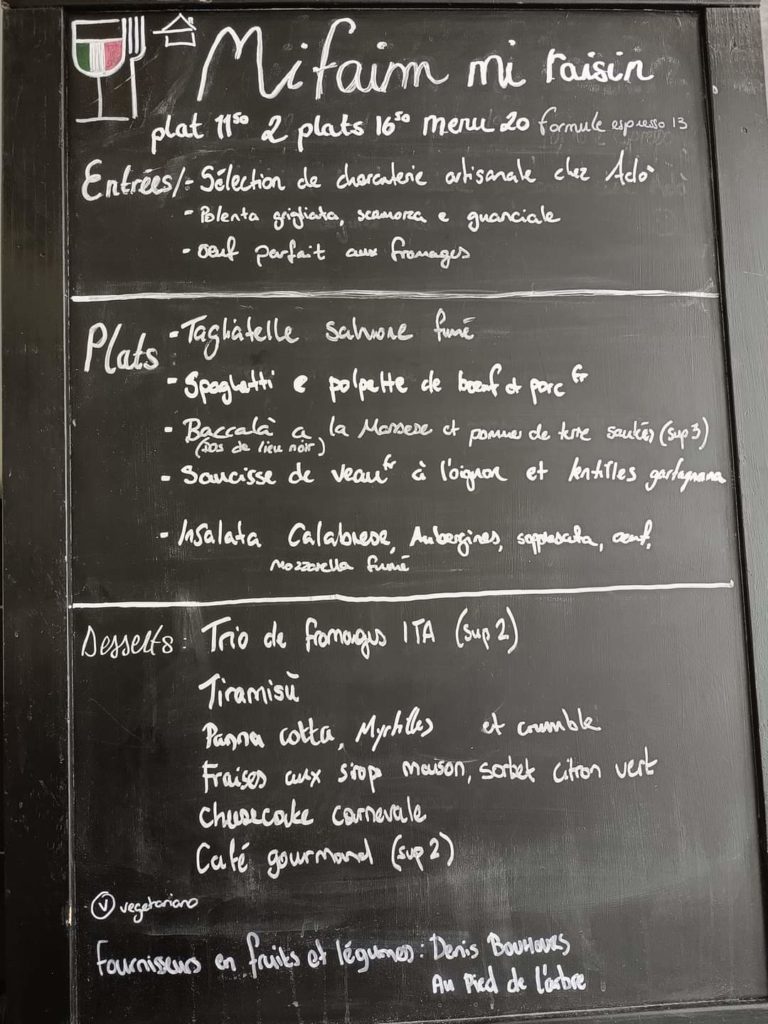 Mifaim mi raisin
plat 11⁵⁰ 2 plats 16⁵⁰ menu 20 formule espresso 13
Entrées/- Sélection de charcuterie artisanale chez Ado
- Polenta grigliata, scamorza e guanciale
- oeuf parfait aux fromages
Plats - Tagliatelle salmone fumé
- Spaghetti e polpette de boeuf et porc fr
- Baccalà a la Monsese et pomme de terre sautés (sup 3)
(DOS de lieu noir)
- Saucisse de veau fr à l'oignon et lentilles garfagnana
- Insalata Calabrese, Aubergines, soppressata, oeuf,
Mozzarella fumé
Desserts: Trio de fromages ITA (sup 2)
Tiramisù
Panna cotta, Myrtilles et crumble
Fraises aux sirop maison, sorbet citron vert
Cheesecake carnevale
Café gourmand (sup 2)
V vegetariano
Fournisseurs en fruits et légumes: Denis BOUHOURS
Au Pied de l'arbre